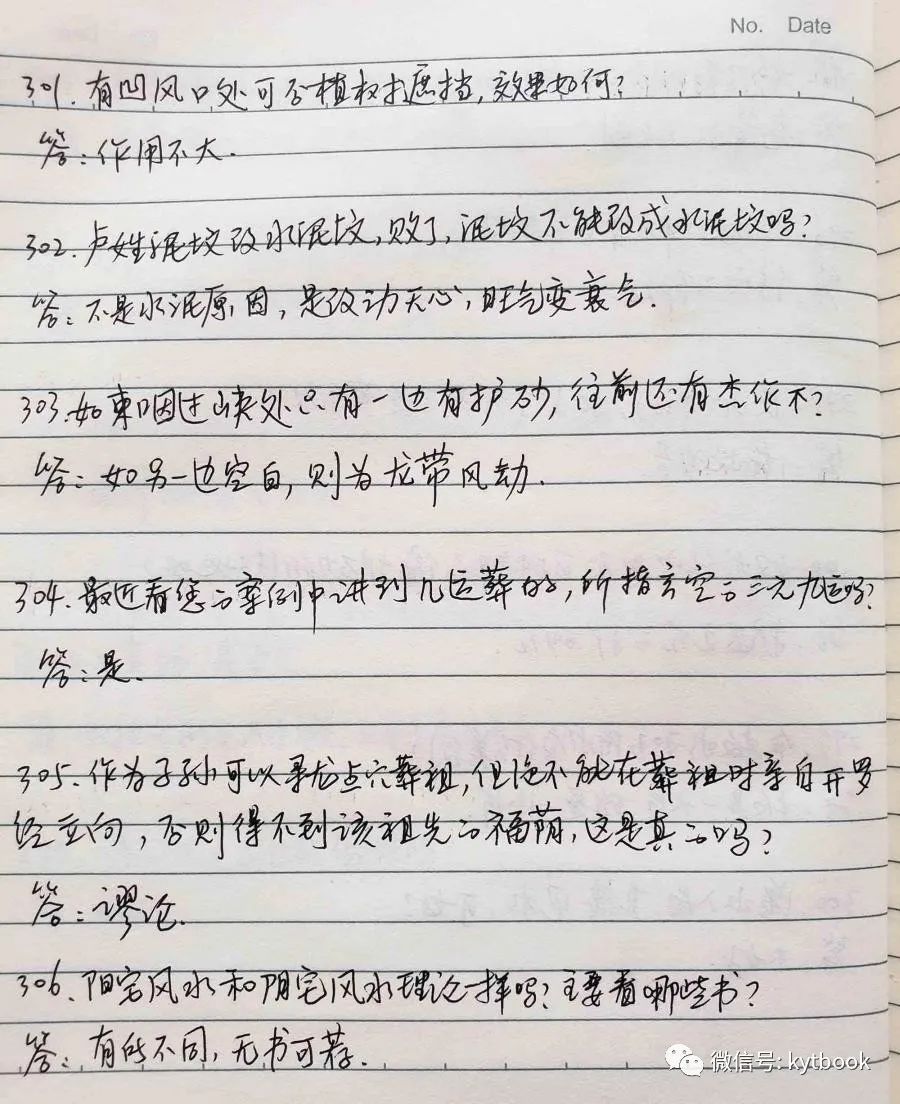 No. Date
301. 有凹风口处可否植树遮挡,效果如何?
答:作用不大.
302. 卢姓泥坟改水泥坟,败了,泥坟不能改成水泥坟吗?
答:不是水泥原因,是改动天心,旺气变衰气.
303. 如束咽过峡处只有一边有护砂,往前还有杰作不?
答:如另一边空白,则为龙带风劫.
304. 最近看您的案例中讲到几运葬的,所指玄空的三元九运吗?
答:是.
305. 作为子孙可以寻龙点穴葬祖,但绝不能在葬祖时亲自开罗
经立向,否则得不到该祖先的福荫,这是真的吗?
答:谬论.
306. 阳宅风水和阴宅风水理论一样吗?主要看哪些书?
答:有所不同,无书可荐.
微信号: kytbook